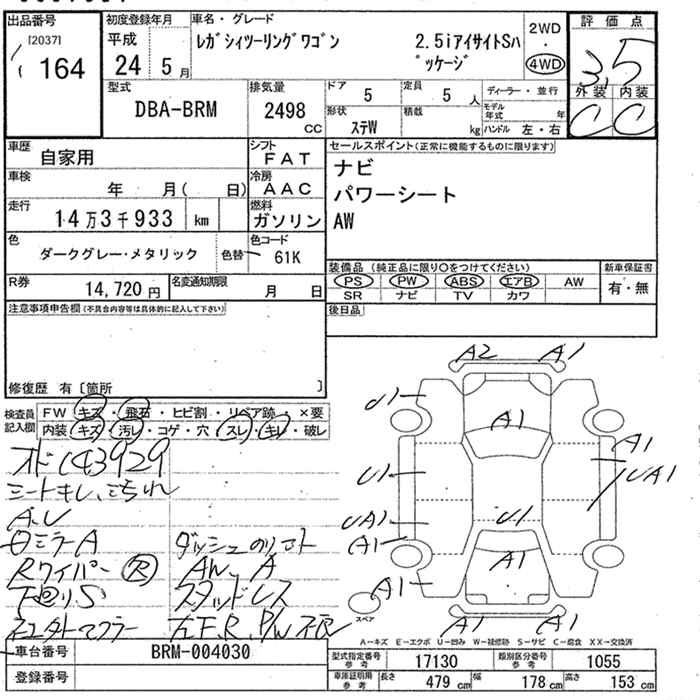 出品番号
[2037]
164
初度登録年月
平成
24 5月
車名・グレード
レガシィツーリングワゴン 2.5iアイサイトSパッケージ
2WD
・
4WD
評価点
3.5
外装 内装
C C
型式
DBA-BRM
排気量
2498 CC
ドア 5
定員 5 人
ディーラー・並行
形状 ステW
積載 kg
モデル年式 年
ハンドル 左・右
車歴 自家用
シフト FAT
車検 年 月( 日)
冷房 AAC
走行 14万3千933 km
燃料 ガソリン
色 ダークグレー・メタリック 色替
色コード 61K
R券 14,720円
名変通知期限 月 日
セールスポイント(正常に機能するものに限ります)
ナビ
パワーシート
AW
装備品(純正品に限り○をつけてください)
新車保証書
PS PW ABS エアB AW
有・無
SR ナビ TV カワ
後日品
注意事項申告欄(不具合内容等は具体的に記入して下さい)
修復歴 有〔箇所 〕
検査員記入欄
FW キズ・飛石・ヒビ割・リペア跡・×要
内装 キズ・汚レ・コゲ・穴・スレ・キレ・破レ
オド143929
A.U
ロミラーA ダッシュ
Rワイパー R AW A
下廻りS スタッドレス
マフラー 左F.R.P/W不良
車台番号 BRM-004030
登録番号
A2 A1
U1
A1
A1
U1
UA1
UA1
U1
A1
A1
A1
スペア
U1 A1
A-キズ E-エクボ U-凹み W-補修跡 S-サビ C-腐食 XX-交換済
型式指定番号 参考 17130
類別区分番号 参考 1055
車庫証明用 参考 長さ 479 cm 幅 178 cm 高さ 153 cm